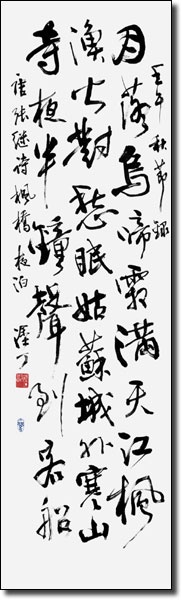 壬午秋节録
月落烏啼霜滿天江楓
漁火對愁眠姑蘇城外寒山
寺夜半鐘聲到客船
唐張继诗楓橋夜泊